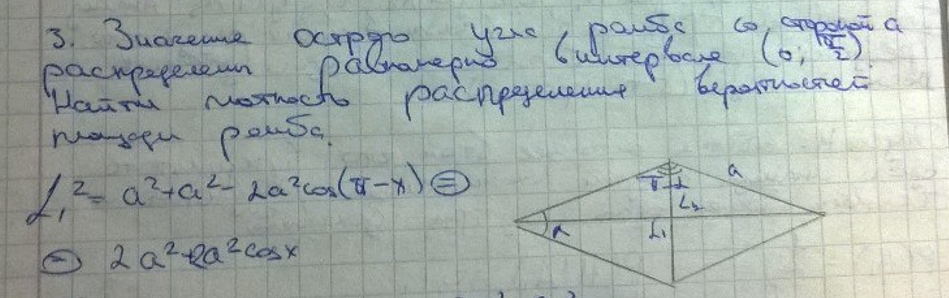 3. Значение острого угла ромба со стороной a
распределены равномерно в интервале (0; π/2).
Найти плотность распределения вероятностей
площади ромба.
L₁² = a² + a² - 2a²cos(π-x) =
= 2a² + 2a²cosx
a
π-α
L₂
α
L₁